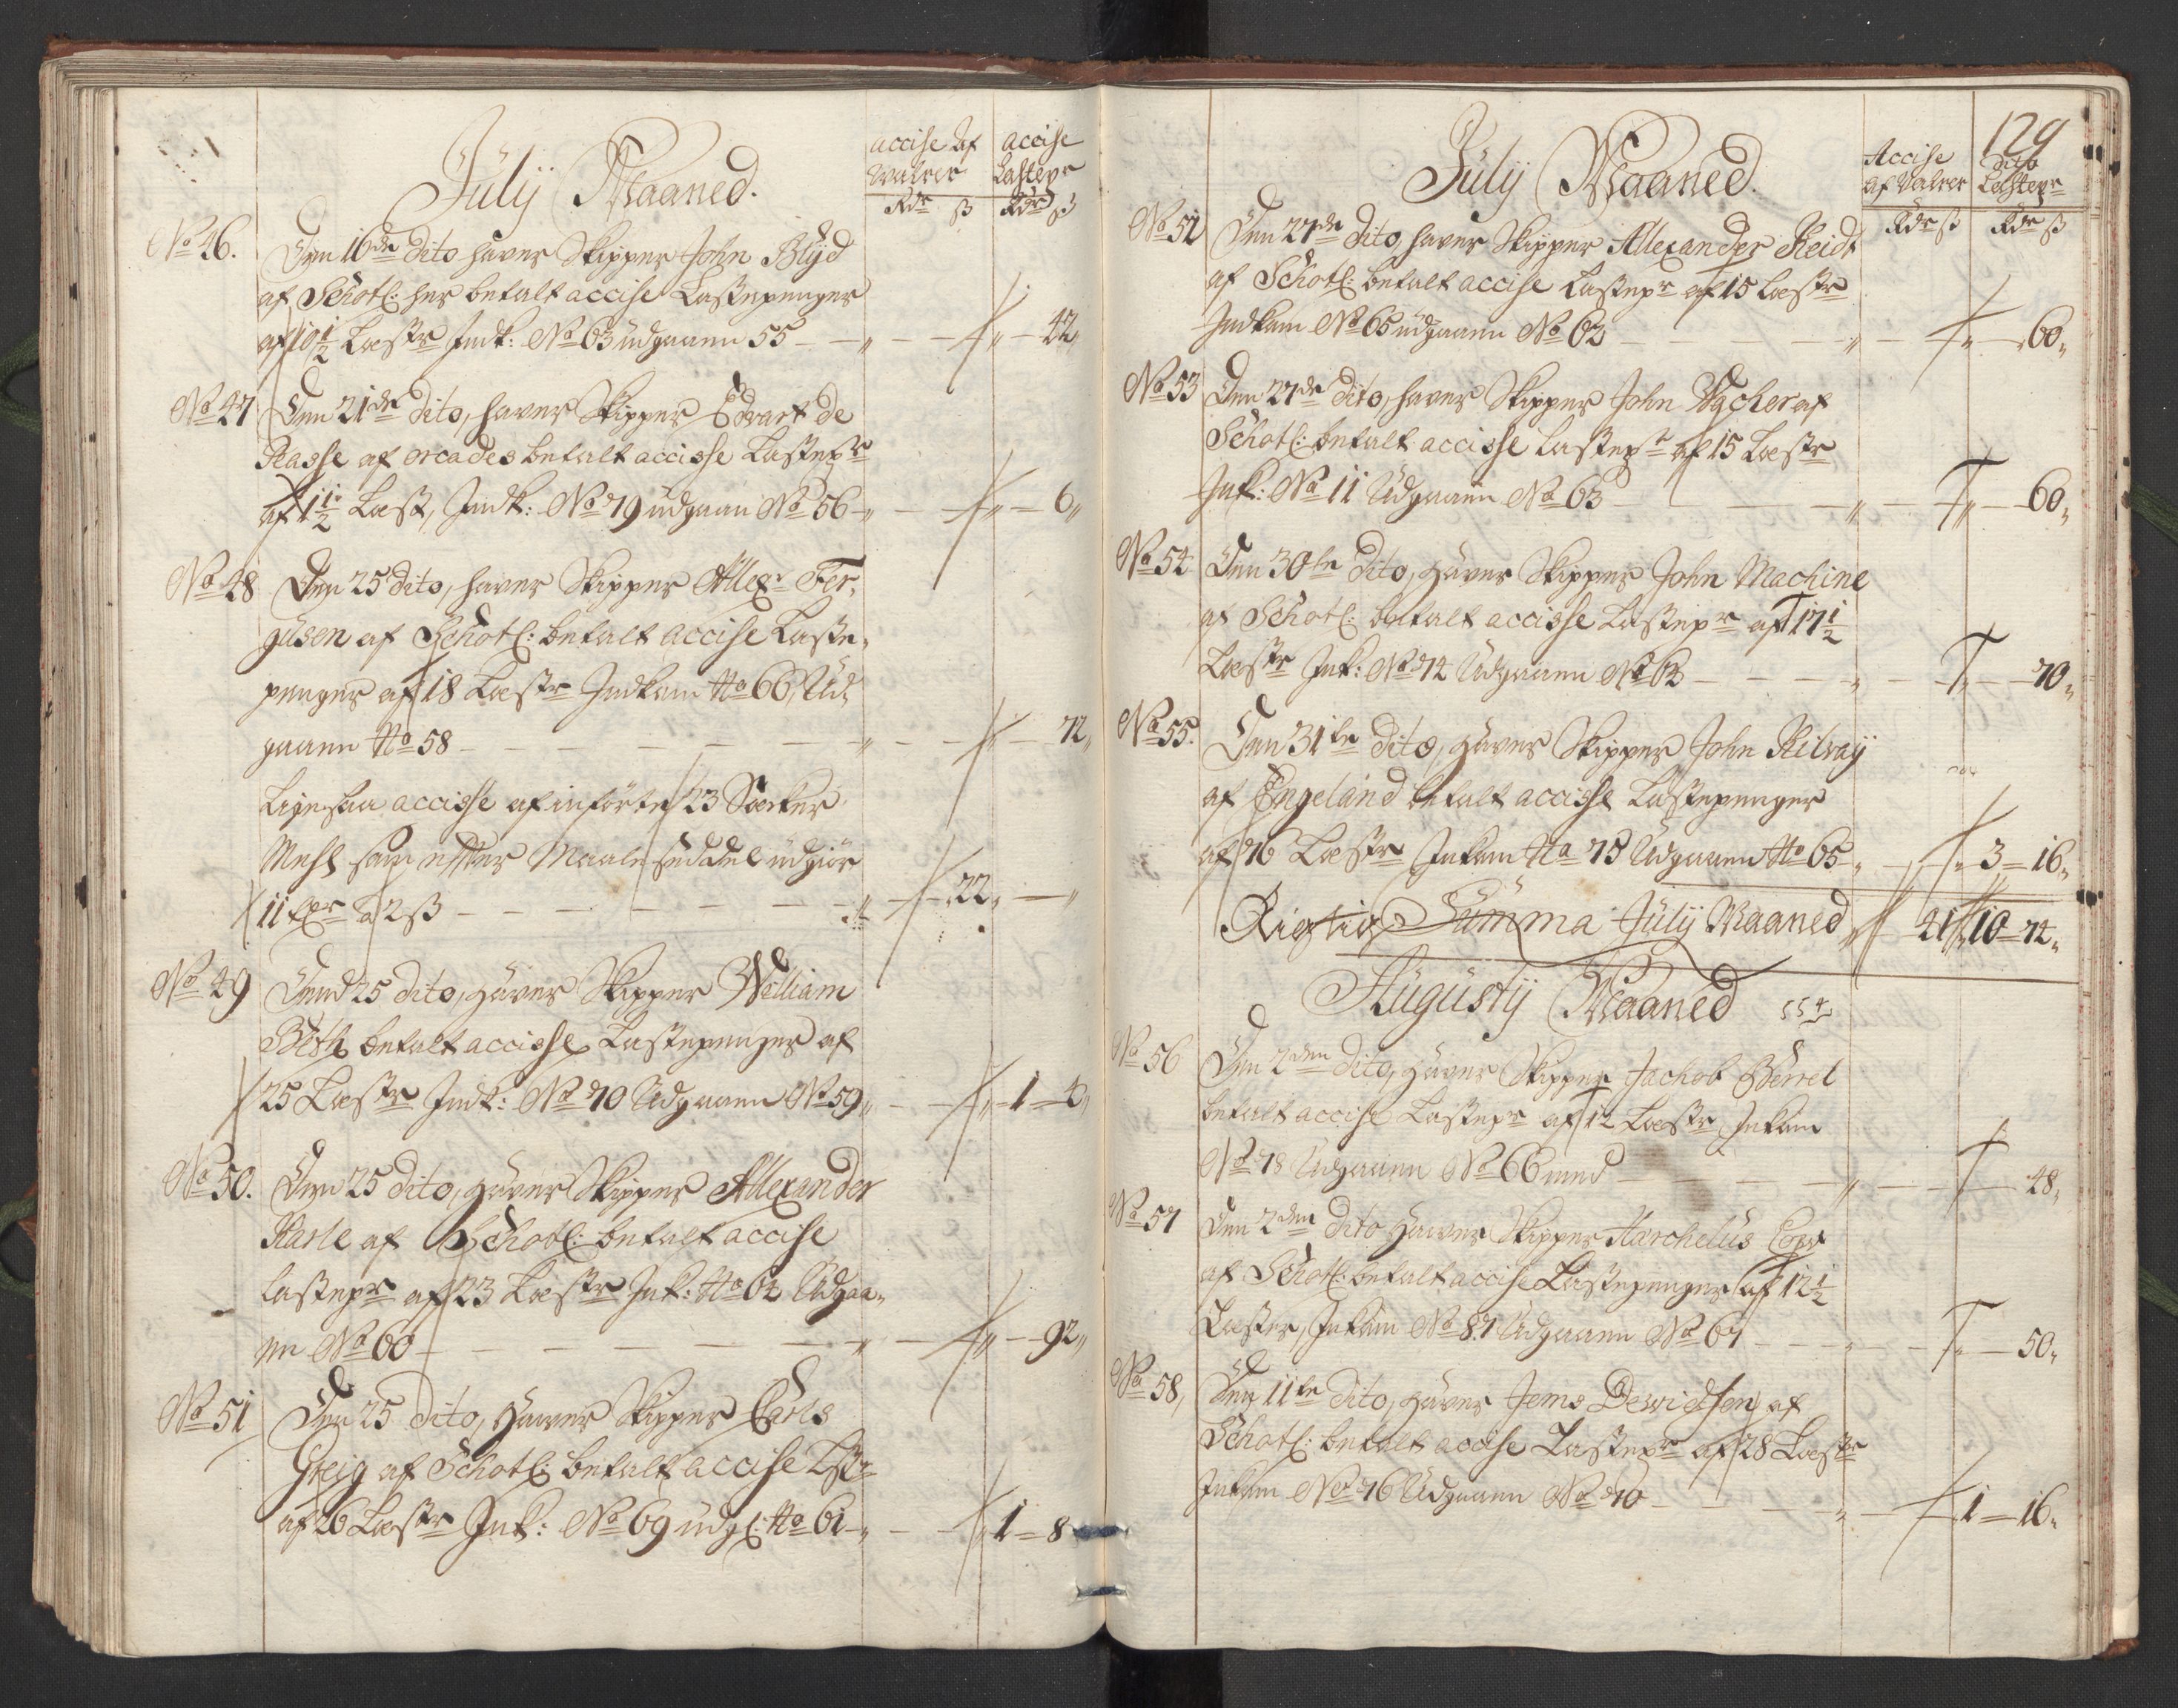 Julÿ Maaned.
accise Af Wahrer
accise Lastepr
Rdr ß Rdr ß
No 46. Den 16de dito haver Skipper John Blyd
af Schotl: her betalt accise Lastepenger
af 10½ Læstr Indk: No 63 udgaaen 55 — „ — „ — 42„
No 47 Den 21de dito, haver Skipper Edvart de
Rasse af orcades betalt accisse Lastepr
af 1½ Læst, Indk: No 79 udgaan No 56 — „ — „ — 6„
No 48 Den 25 dito, haver Skipper Allexr Fer-
gusen af Schotl: betalt accise Laste-
penger af 18 Læstr Indkom No 66, Ud-
gaaen No 58 — „ — „ — 72„
Ligesaa accisse af inførte 23 Sækker
Mehl som efter Maale seddel udgiør
11 tør a 2 ß — „ — 22„ — „
No 49 Dend 25 dito, haver Skipper William
Beth betalt accisse Lastepenger af
25 Læstr Indk: No 70 Udgaaen No 59 „ — „ 1 — 4„
No 50. Den 25 dito, haver Skipper Allexander
Karle af Schotl: betalt accise
lastepr af 23 Læstr Ink: No 64 Udgaa-
en No 60 — „ — „ — 92„
No 51 Den 25 dito, haver Skipper Carls
Greig af Schotl: betalt accise Lstr
af 26 Læstr Ink: No 69 udg: No 61 — „ — „ 1 — 8
129
Julÿ Maaned.
Accise af Vahrer
dito Lastepr
Rdr ß Rdr ß
No 52 Den 27de dito, haver Skipper Allexander Reidt
af Schotl: betalt accise Lastepr af 15 Læstr
Indkom No 65 udgaaen No 62 — „ — „ — 60„
No 53 Den 27de dito, haver Skipper John af
Schotl: betalt accisse Lastepr af 15 Læstr
Ink: No 11 Udgaaen No 63 — „ — „ — 60„
No 54 Den 30te dito, haver Skipper John Machine
af Schotl: betalt accisse Lastepr af 17½
Læstr Ink: No 74 Udgaaen No 64 — „ — „ — 70„
No 55. Den 31te dito, haver Skipper John Kilvaÿ
af Engeland betalt accisse Lastepenger
af 76 Læstr Inkom No 75 Udgaaen No 65 „ — „ 3 — 16„
Rigtig Summa Julÿ Maaned „ 41 „ 10 — 74„
Augustÿ Maaned
No 56 Den 2den dito, haver Skipper Jachob Berrel
betalt accise Lastepr af 12 Læstr Inkom
No 78 Udgaaen No 66 med — „ — 48„
No 57 Den 2den dito haver Skipper Harchelus
af Schotl: betalt accise Lastepenger af 12½
Læster, Inkom No 87 Udgaaen No 67 — „ — „ — 50„
No 58, Den 11te dito, haver Jems Dewidsen af
Schotl: betalt accise Lastepr af 28 Læstr
Inkom No 76 Udgaaen No 70 — „ — 1 — 16„